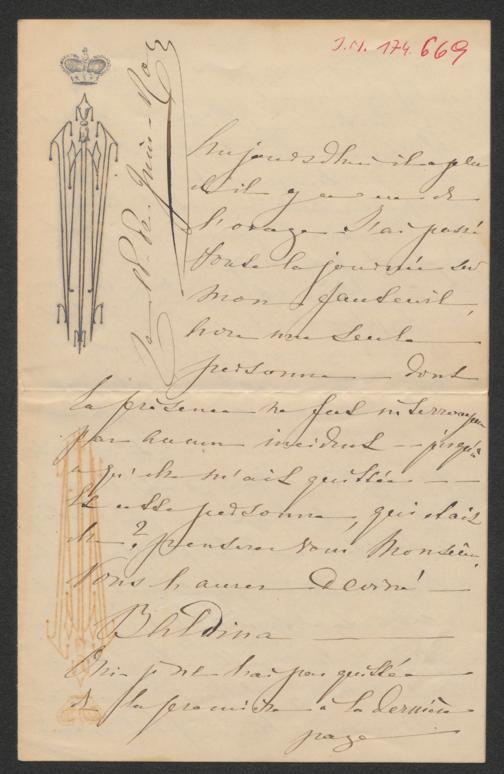 I.N. 174.669
Aujourdhui il a plu
et il y a eu de
l'orage. J'ai passé
toute la journée sur
mon fauteuil,
une seule
personne dont
la présence ne fut interrompue
par aucun incident — jusqu'à
qu'elle m'ait quittée —
Et cette personne, qui était
elle? penserez vous Monsieur,
Vous l'aurez deviné —
Baldina —
Oui je ne l'ai pas quittée
de la première à la dernière
page